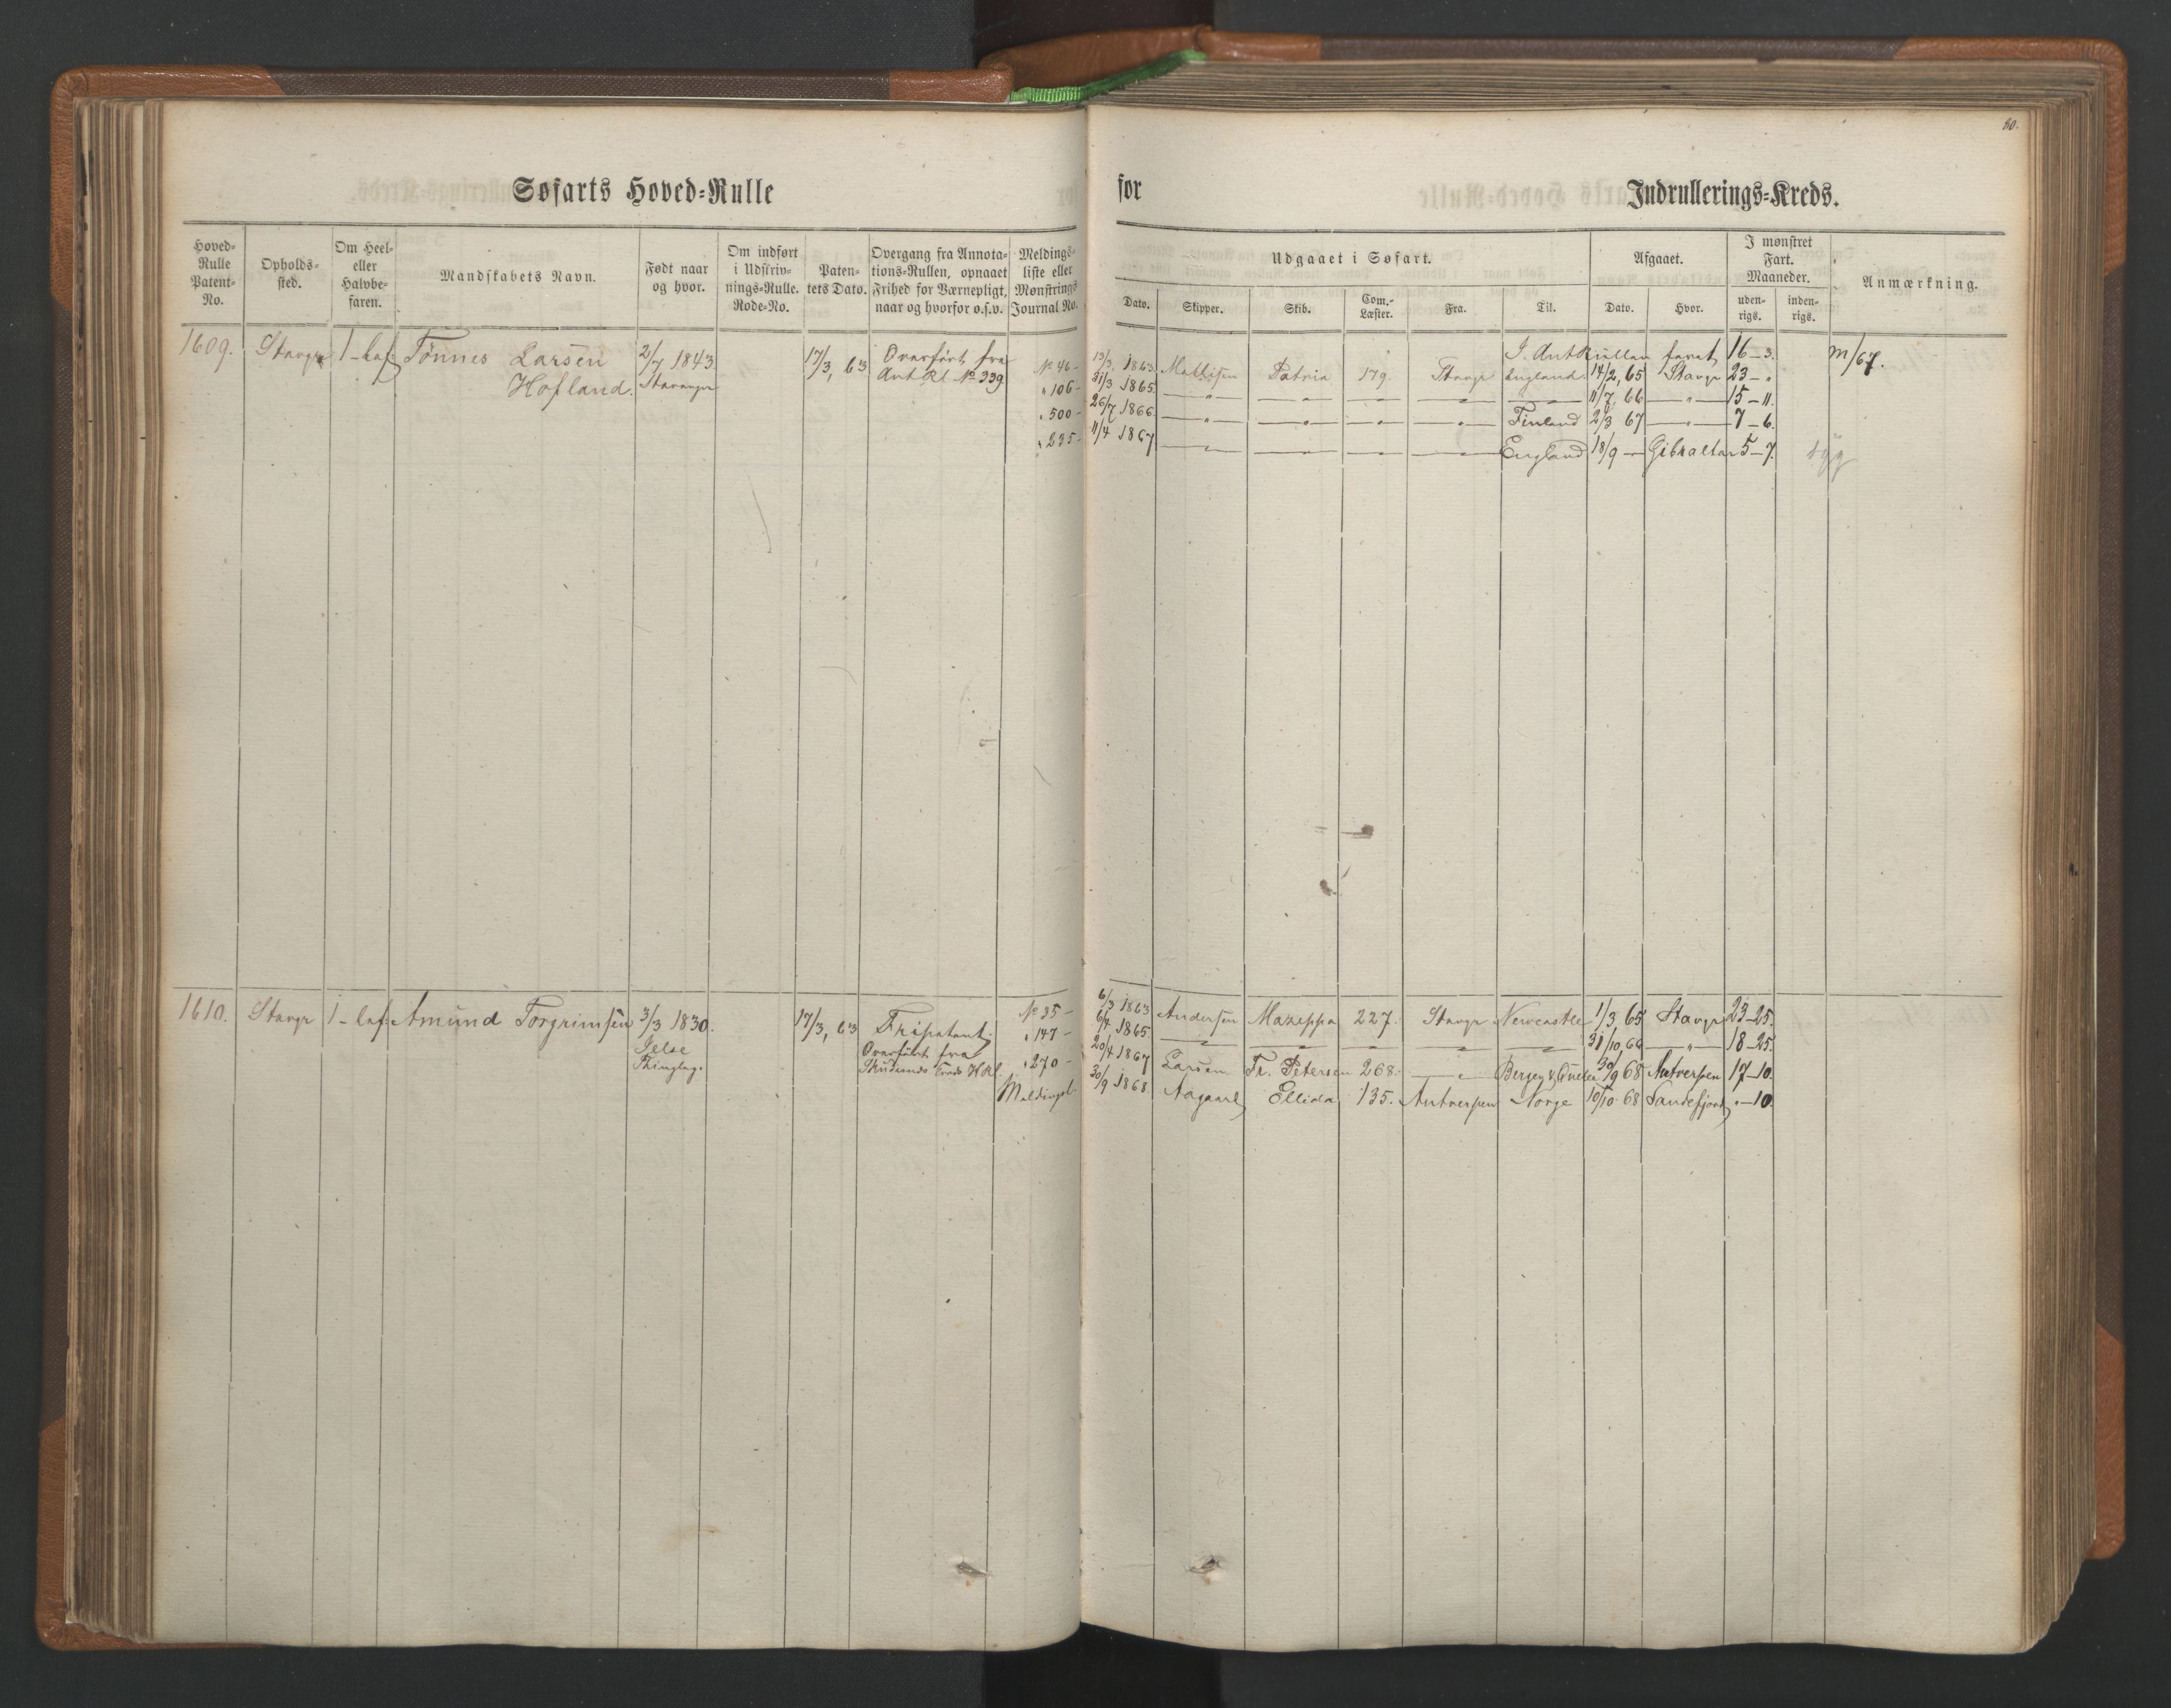 80.
Søfarts Hoved-Rulle
for
Indrullerings-Kreds.
Hoved-Rulle Patent-No.
Opholds-sted.
Om Heel- eller Halvbe-faren.
Mandskabets Navn.
Født naar og hvor.
Om indført i Udskriv-nings-Rulle. Rode-No.
Paten-tets Dato.
Overgang fra Annota-tions-Rullen, opnaaet Frihed for Værnepligt, naar og hvorfor o.s.v.
Meldings-liste eller Mønstrings Journal No.
Udgaaet i Søfart.
Dato.
Skipper.
Skib.
Com.-Læster.
Fra.
Til.
Afgaaet.
Dato.
Hvor.
I mønstret Fart. Maaneder.
uden-rigs.
inden-rigs.
Anmærkning.
1609. Stavgr 1-haf: Tönnes Larsen 2/7 1843 17/3, 63 Overført fra № 46-
Hofland. Stavanger Ant Rl. № 339 " 106-
" 500-
" 235-
I. Ant Rullen faret, 16-3. m/67.
13/3. 1863 Mallisen Patria 179 Stavgr England. 14/2, 65 Stavgr 23-"
31/3 1865. —"— —"— —"— —"— 11/7, 66 —"— 15-11.
26/7 1866. —"— —"— —"— —"— Finland 2/3 67 —"— 7-6.
11/4 1867 —"— —"— —"— —"— England 18/9 — Gibraltar 5-7. syg
1610. Stavgr 1-haf: Amund Torgrimsen 3/3 1830. 17/3, 63 Fripatent. № 35-
Jelse Overført fra " 147-
Thinglag. Skudesnæs Kreds H.Rl. " 270-
Meldingsl.
6/3 1863 Andersen Mazeppa 227. Stavgr Newcastle 1/3 65 Stavgr 23-25.
6/4 1865. —"— —"— —"— —"— —"— 31/10, 66 —"— 18-25.
20/4 1867 Larsen Fr. Petersen 268. —"— Bergen & 30/9 68 Antverpen 17-10.
30/9 1868 Aagaard Ellida 135. Antverpen Norge 10/10 68 Sandefjord "-10.